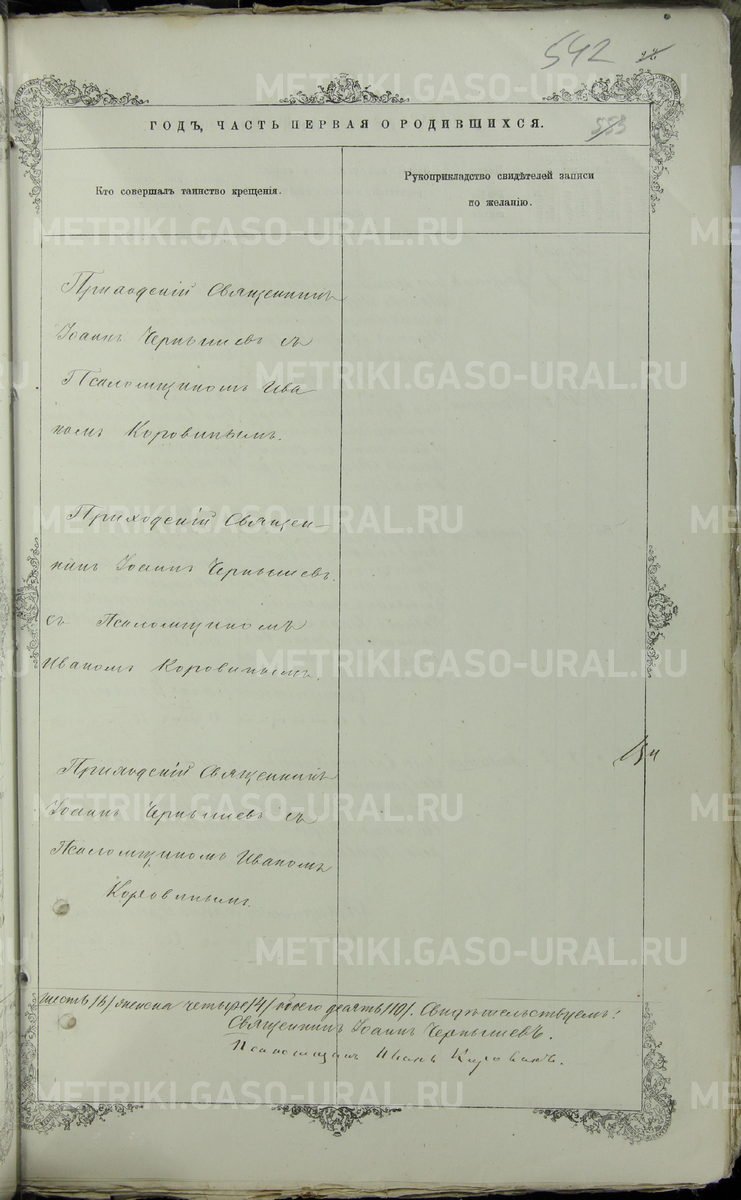 542
ГОДЪ, ЧАСТЬ ПЕРВАЯ О РОДИВШИХСЯ.
583
Кто совершалъ таинство крещенія.
Рукоприкладство свидѣтелей записи
по желанію.
Приходскій Священникъ
Іоаннъ Чернышевъ съ
Псаломщикомъ Ива
номъ Коровинымъ.
Приходскій Священ-
никъ Іоаннъ Чернышевъ.
съ Псаломщикомъ
Иваномъ Коровинымъ.
Приходскій Священникъ
Іоаннъ Чернышевъ съ
Псаломщикомъ Иваномъ
Коровинымъ.
шесть /6/ женска четыре /4/ обоего десять /10/. Свидѣтельствуемъ:
Священникъ Іоаннъ Чернышевъ.
Псаломщикъ Иванъ Коровинъ.
METRIKI.GASO-URAL.RU